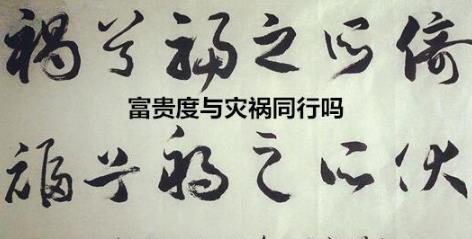 祸兮福之所倚
富贵度与灾祸同行吗
福兮祸之所伏